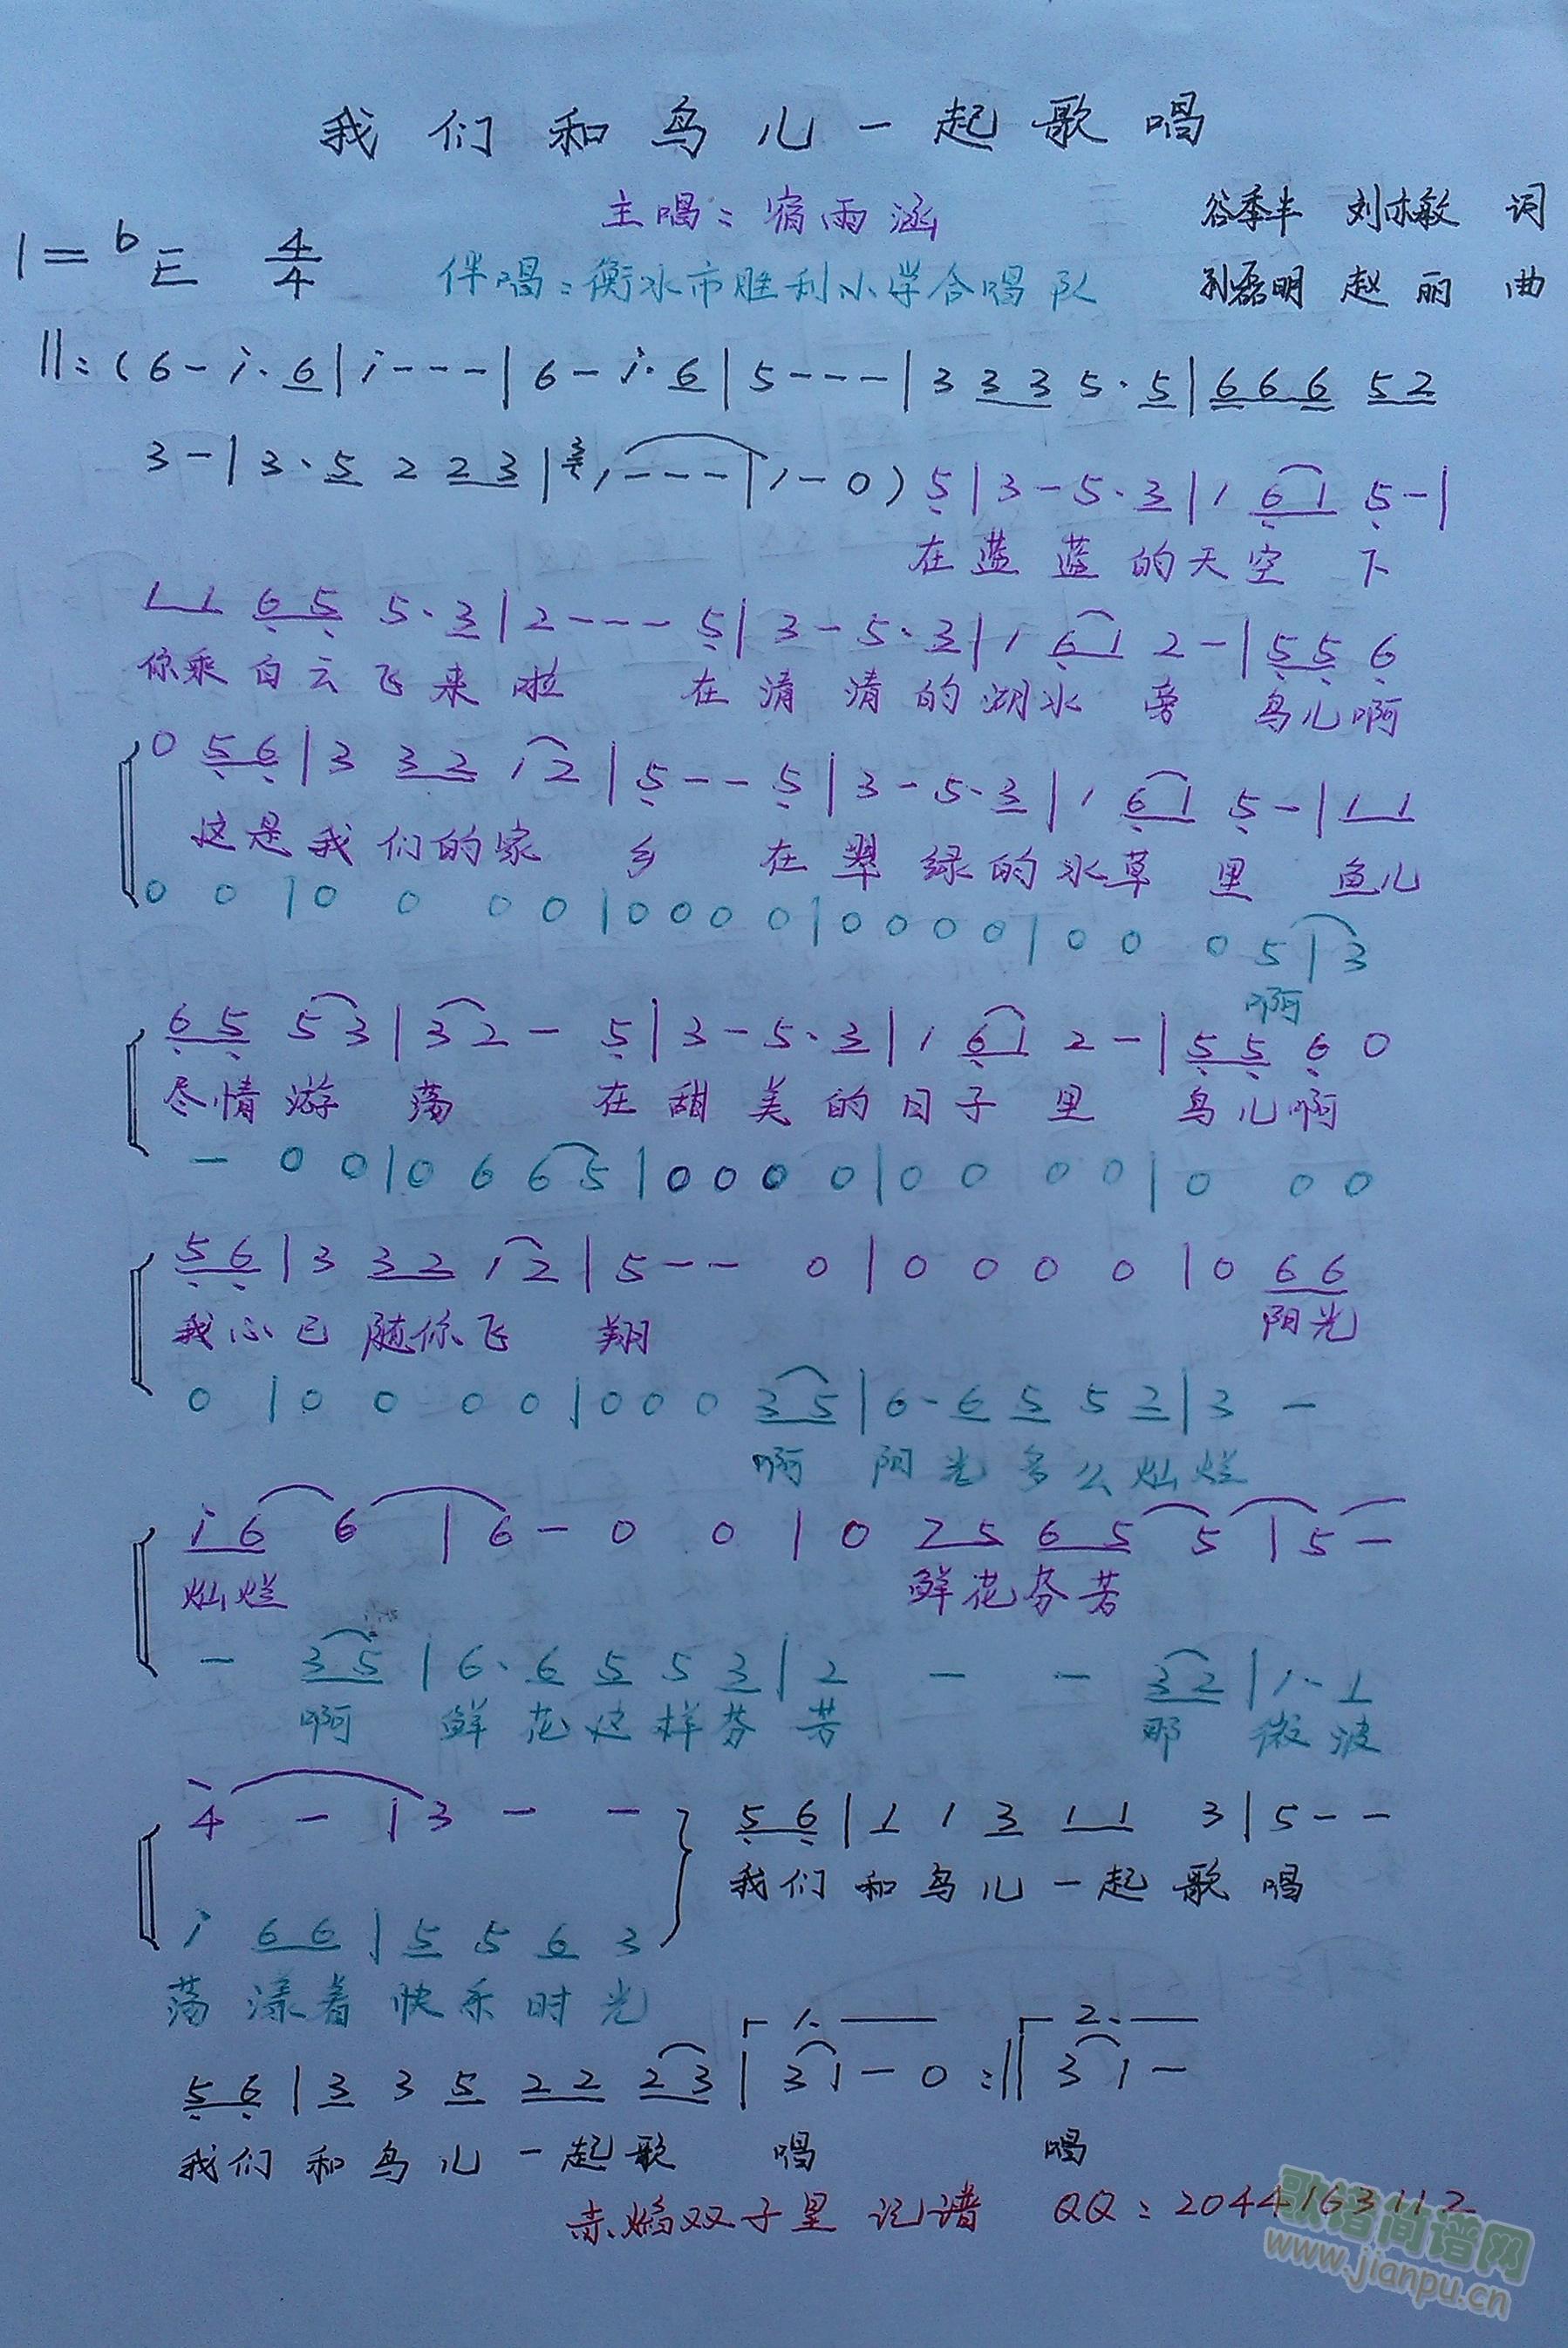 我们和鸟儿一起歌唱
主唱：宿雨涵 谷季丰 刘亦敏 词
1=ᵇE 4/4 伴唱：衡水市胜利小学合唱队 孙磊明 赵丽 曲
||:(6-i·6|i---|6-i·6|5---|3 3 3 5·5|6 6 6 5 2
3-|3·5 2 2 3|1---|1-0) 5|3-5·3|1 6 1 5-|
在蓝蓝的天空下
1 1 6 5 5·3|2---5|3-5·3|1 6 1 2-|5 5 6
你乘白云飞来啦 在清清的湖水旁 鸟儿啊
0 5 6|3 3 2 1 2|5--5|3-5·3|1 6 1 5-|1 1
这是我们的家乡 在翠绿的水草里 鱼儿
0 0|0 0 0 0|0 0 0 0|0 0 0 0|0 0 0 5|3
啊
6 5 5 3|3 2-5|3-5·3|1 6 1 2-|5 5 6 0
尽情游荡 在甜美的日子里 鸟儿啊
- 0 0|0 6 6 5|0 0 0 0|0 0 0 0|0 0 0
5 6|3 3 2 1 2|5--0|0 0 0 0|0 6 6
我心已随你飞翔 阳光
0|0 0 0 0|0 0 0 3 5|6·6 5 5 2|3 -
啊 阳光多么灿烂
i 6 6|6-0 0|0 2 5 6 5 5|5-
灿烂 鲜花芬芳
- 3 5|6·6 5 5 3|2 - - 3 2|1·1
啊 鲜花这样芬芳 那 微波
4 -|3 - - 5 6|1 1 3 1 1 3|5--
我们和鸟儿一起歌唱
i 6 6|5 5 6 3
荡漾着快乐时光
1. 2.
5 6|3 3 5 2 2 2 3|3 1-0:||3 1-
我们和鸟儿一起歌唱 唱
赤焰双子星 记谱 QQ：2044163112
歌谱简谱网
www.jianpu.cn